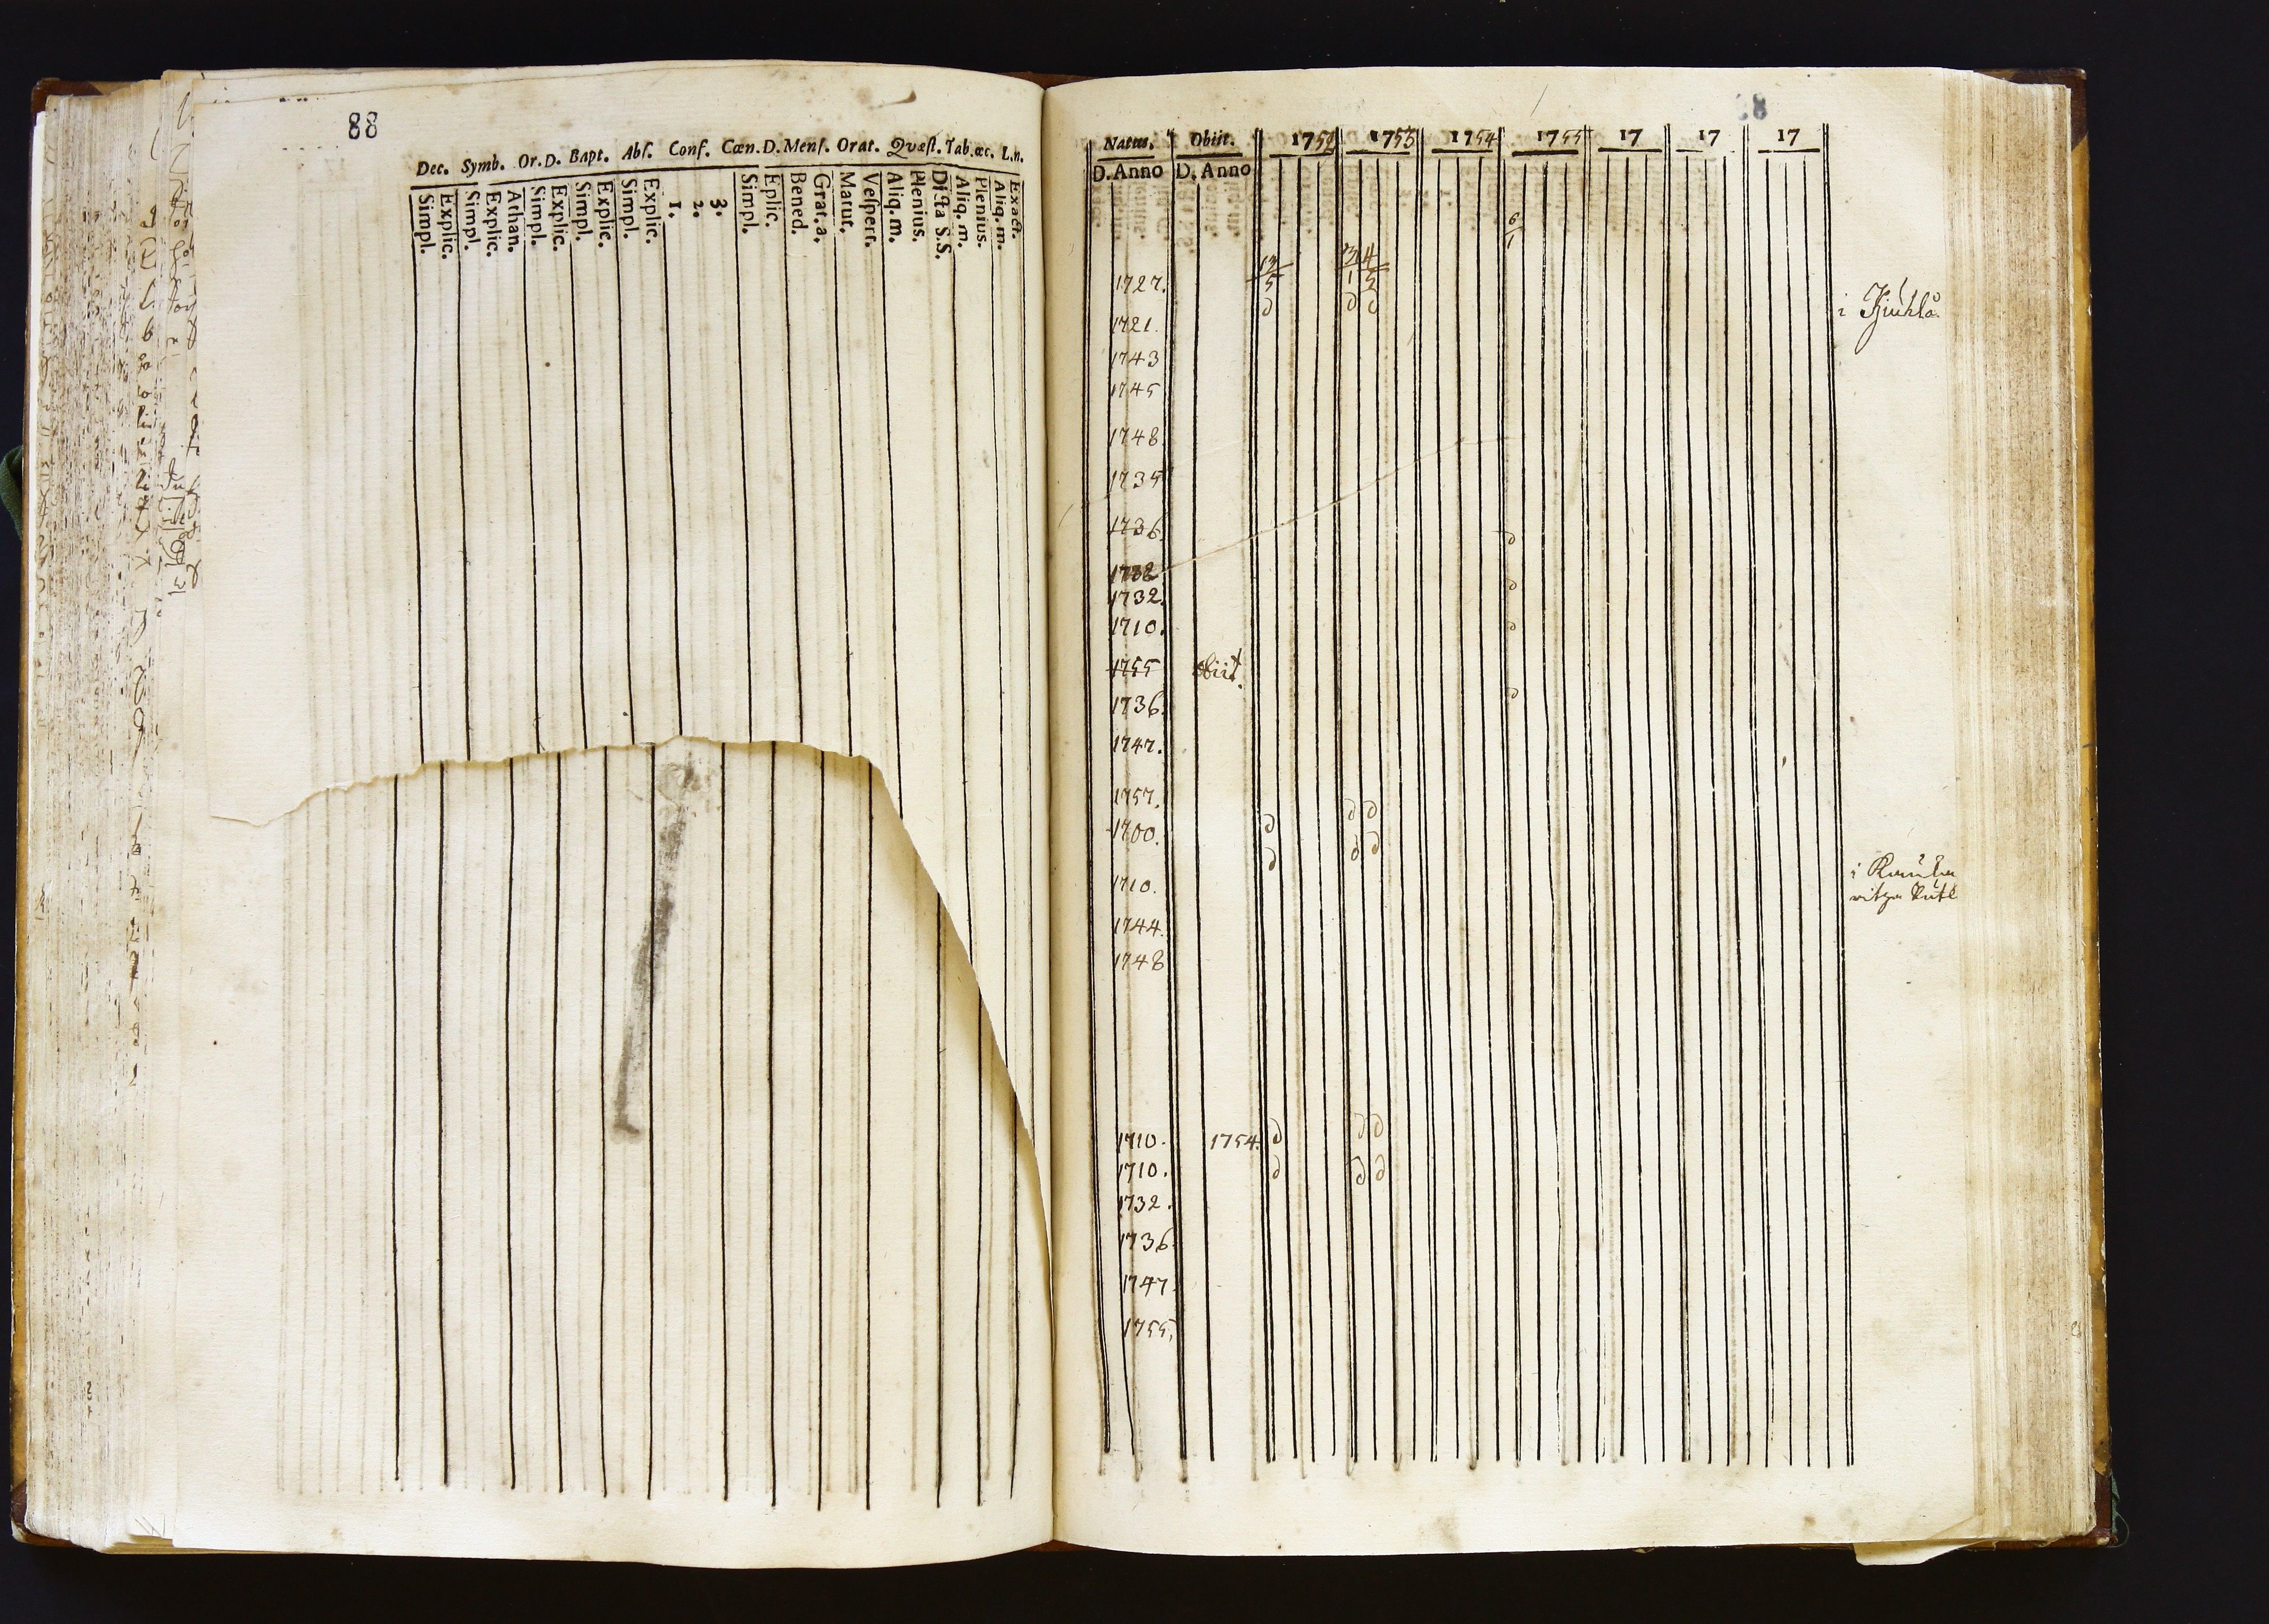 88
Dec. Symb. Or. D. Bapt. Abſ. Conf. Cœn. D. Menſ. Orat. Qvæſt. Tab. œc. L.n.
Simpl. Explic. Simpl. Explic. Athan. Simpl. Explic. Simpl. Explic. Simpl. Explic. 1. 2. 3. Simpl. Eplic. Bened. Grat. a. Matut. Veſpert. Aliq. m. Plenius. Dicta S.S. Aliq. m. Plenius. Aliq. m. Exact.
88
Natus. Obiit. 1752 1753 1754 1755 17 17 17
D. Anno D. Anno
6/1
13/5 4/5
1727. ∂ ∂ ∂
1721.
1743
1745
1748
1735
1736. ∂
∂
1732.
1710. ∂
1755 obiit.
1736. ∂
1747.
1757.
1700. ∂ ∂ ∂
∂ ∂ ∂
1710.
1744.
1748
1710. 1754. ∂ ∂ ∂
1710. ∂ ∂ ∂
1732.
1736.
1747.
1755.